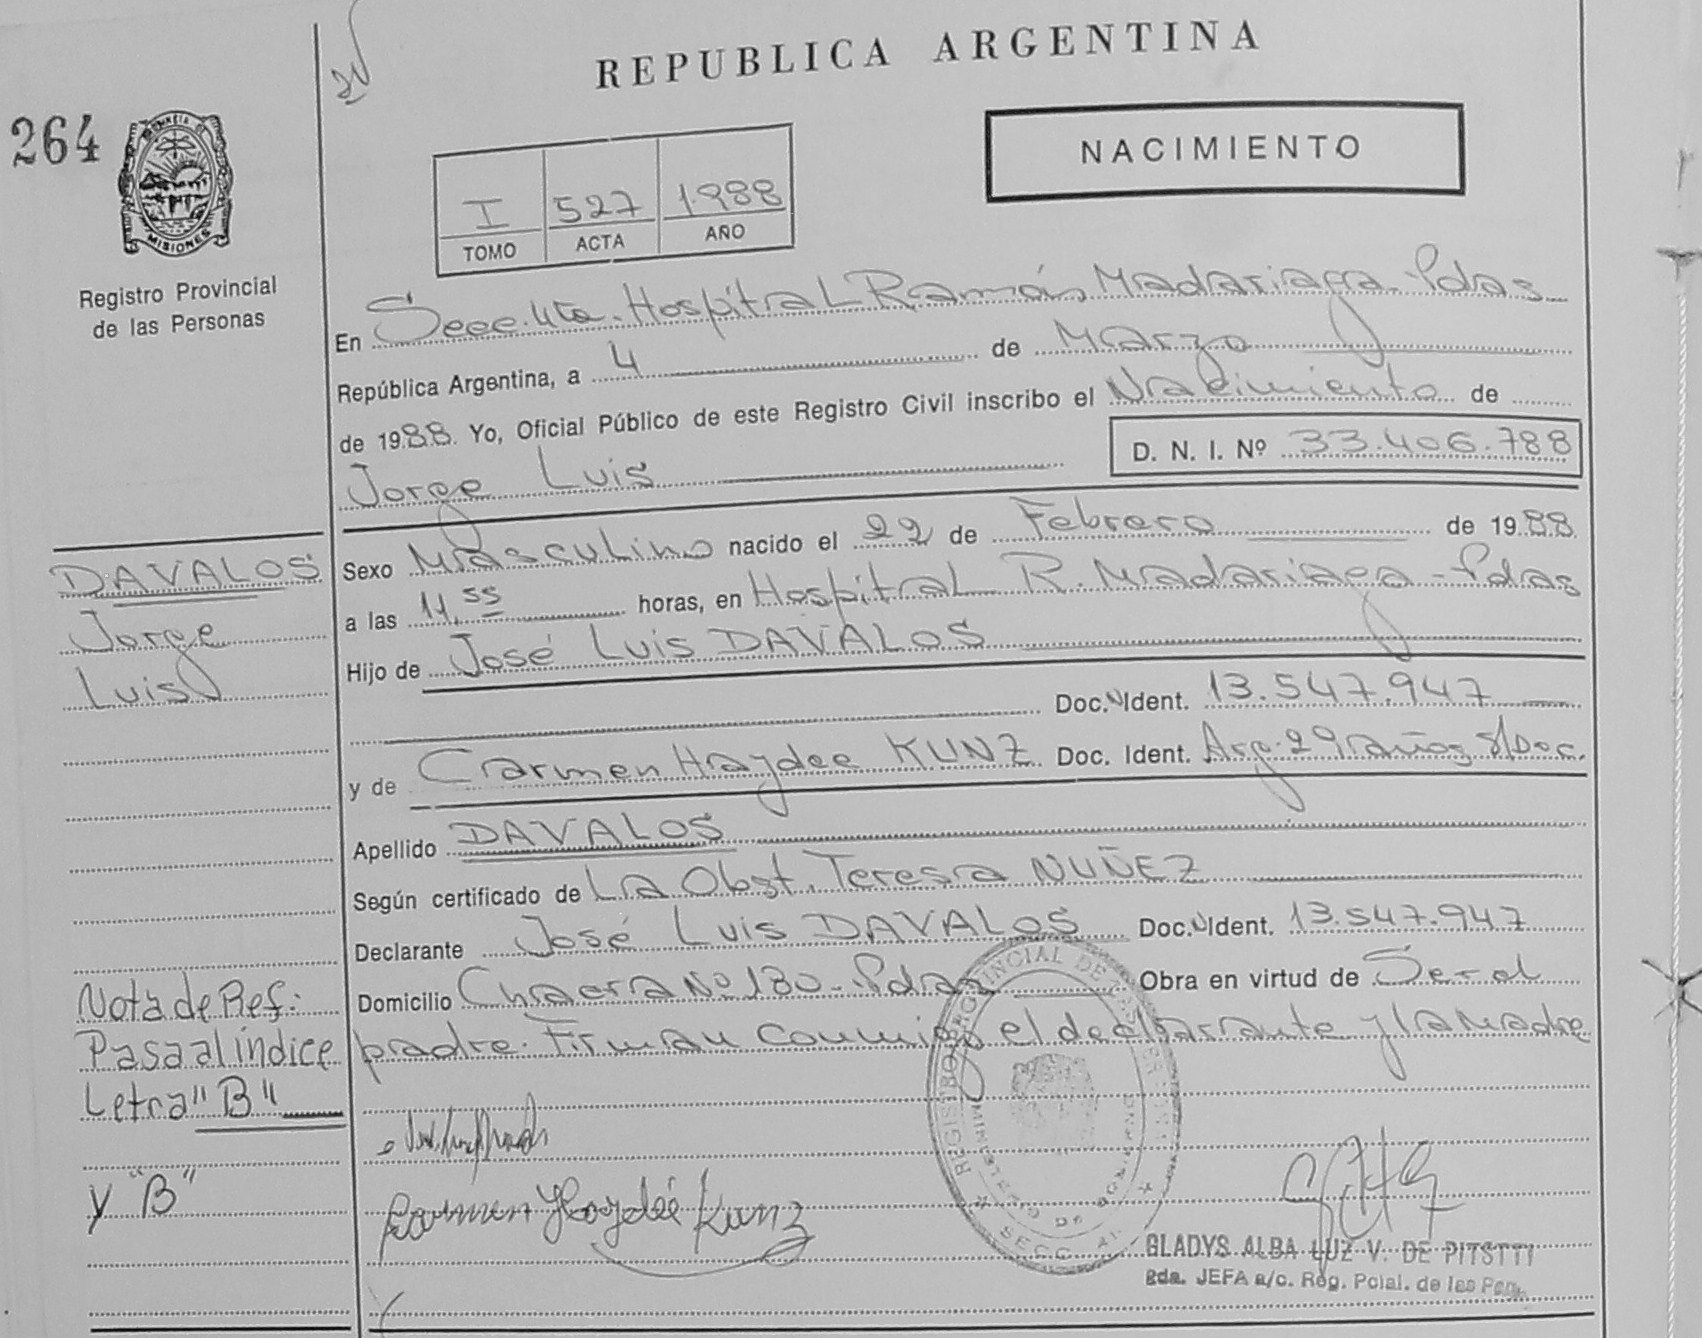 REPUBLICA ARGENTINA
264
PROVINCIA DE
MISIONES
Registro Provincial
de las Personas
NACIMIENTO
I 527 1988
TOMO ACTA AÑO
En Secc. 4ta. Hospital Ramón Madariaga - Pdas
República Argentina, a 4 de Marzo
de 1988. Yo, Oficial Público de este Registro Civil inscribo el Nacimiento de
Jorge Luis D. N. I. Nº 33.406.788
Sexo Masculino nacido el 22 de Febrero de 1988
a las 11,55 horas, en Hospital R. Madariaga - Pdas
Hijo de José Luis DAVALOS
Doc. Ident. 13.547.947
y de Carmen Haydee KUNZ Doc. Ident. Arg. 29 años s/Doc.
Apellido DAVALOS
Según certificado de La Obst. Teresa NUÑEZ
Declarante José Luis DAVALOS Doc. Ident. 13.547.947
Domicilio Chacra Nº 180 - Pdas Obra en virtud de Ser el
padre. Firman conmigo el declarante y la madre
DAVALOS
Jorge
Luis
Nota de Ref:
Pasa al índice
Letra "B"
y "B"
Carmen Haydée Kunz
GLADYS ALBA LUZ V. DE PITSTTI
2da. JEFA a/c. Reg. Pcial. de las Per.